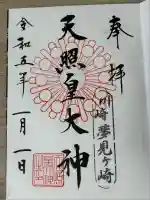 奉拝
川崎 夢見ヶ崎
天照皇大神
令和五年一月一日